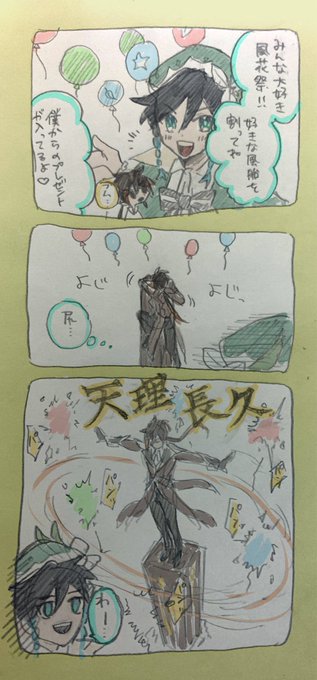 みんな大好き
風花祭!!
好きな風船を
割ってね
僕からのプレゼント
が入ってるよ♡
ム…
よじ
よじっ
尻…
天理長久
パン
パン
パン
パン
パン
わー…